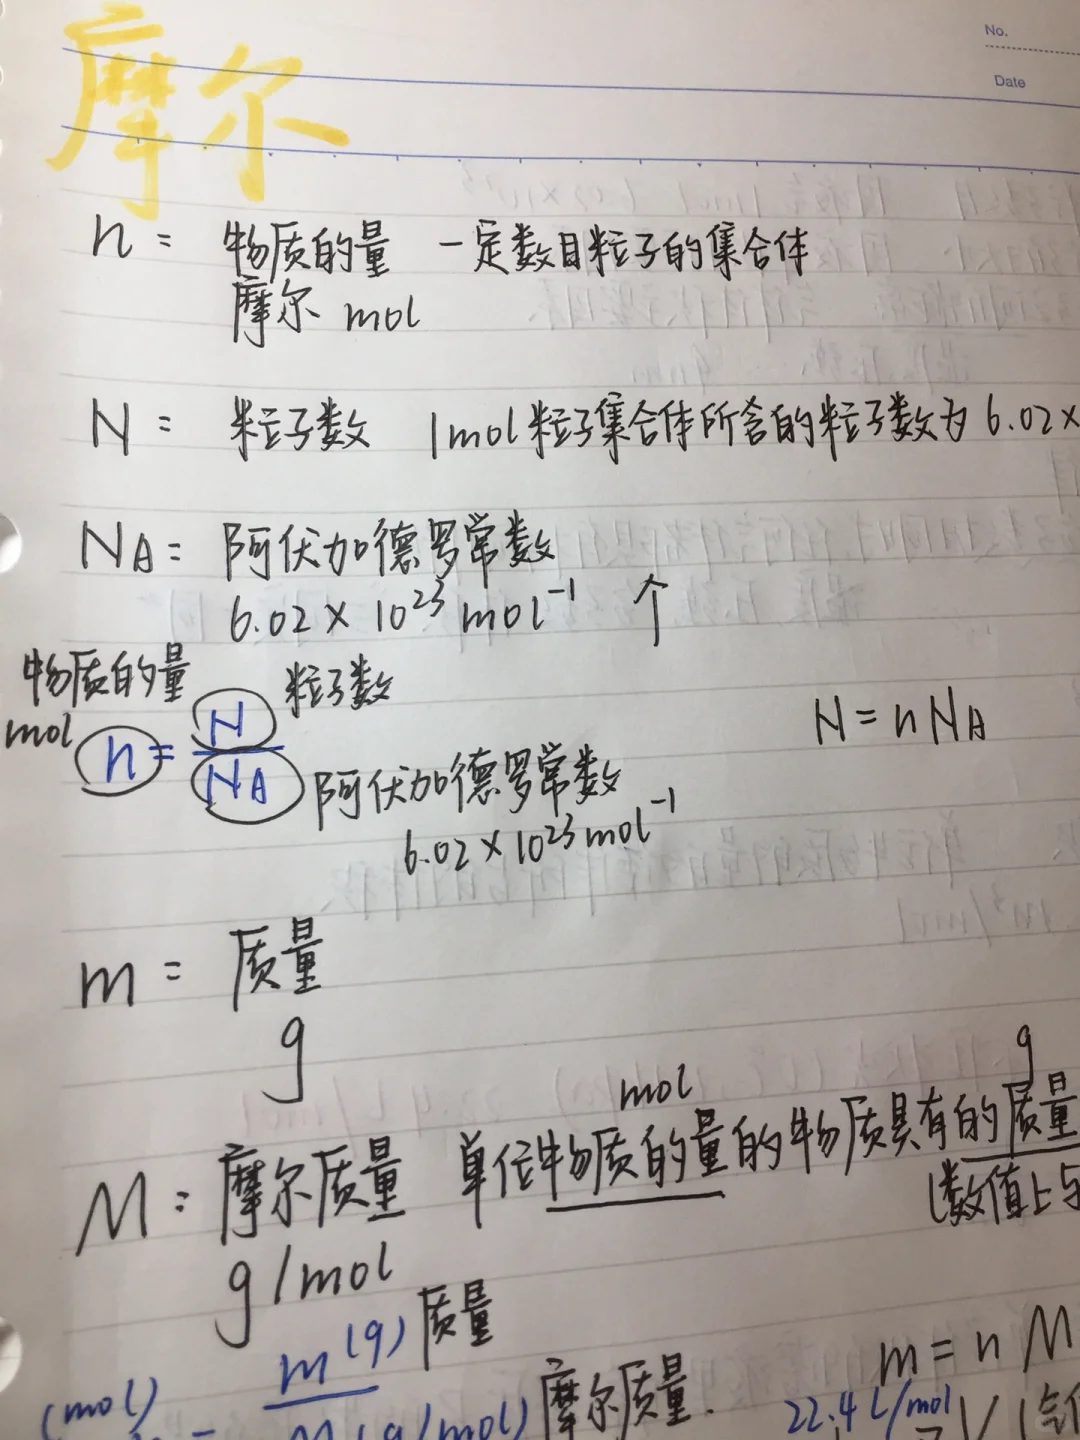 No.
Date
摩尔
n = 物质的量 一定数目粒子的集合体
摩尔 mol
N = 粒子数 1mol粒子集合体所含的粒子数为6.02×
NA = 阿伏加德罗常数
6.02×10²³mol⁻¹ 个
物质的量 粒子数
mol n = N/NA N = nNA
阿伏加德罗常数
6.02×10²³mol⁻¹
m = 质量
g
mol g
M = 摩尔质量 单位物质的量的物质具有的质量
(数值上与
g/mol
m(g) 质量
m = nM
(mol) = M(g/mol) 摩尔质量.
22.4L/mol